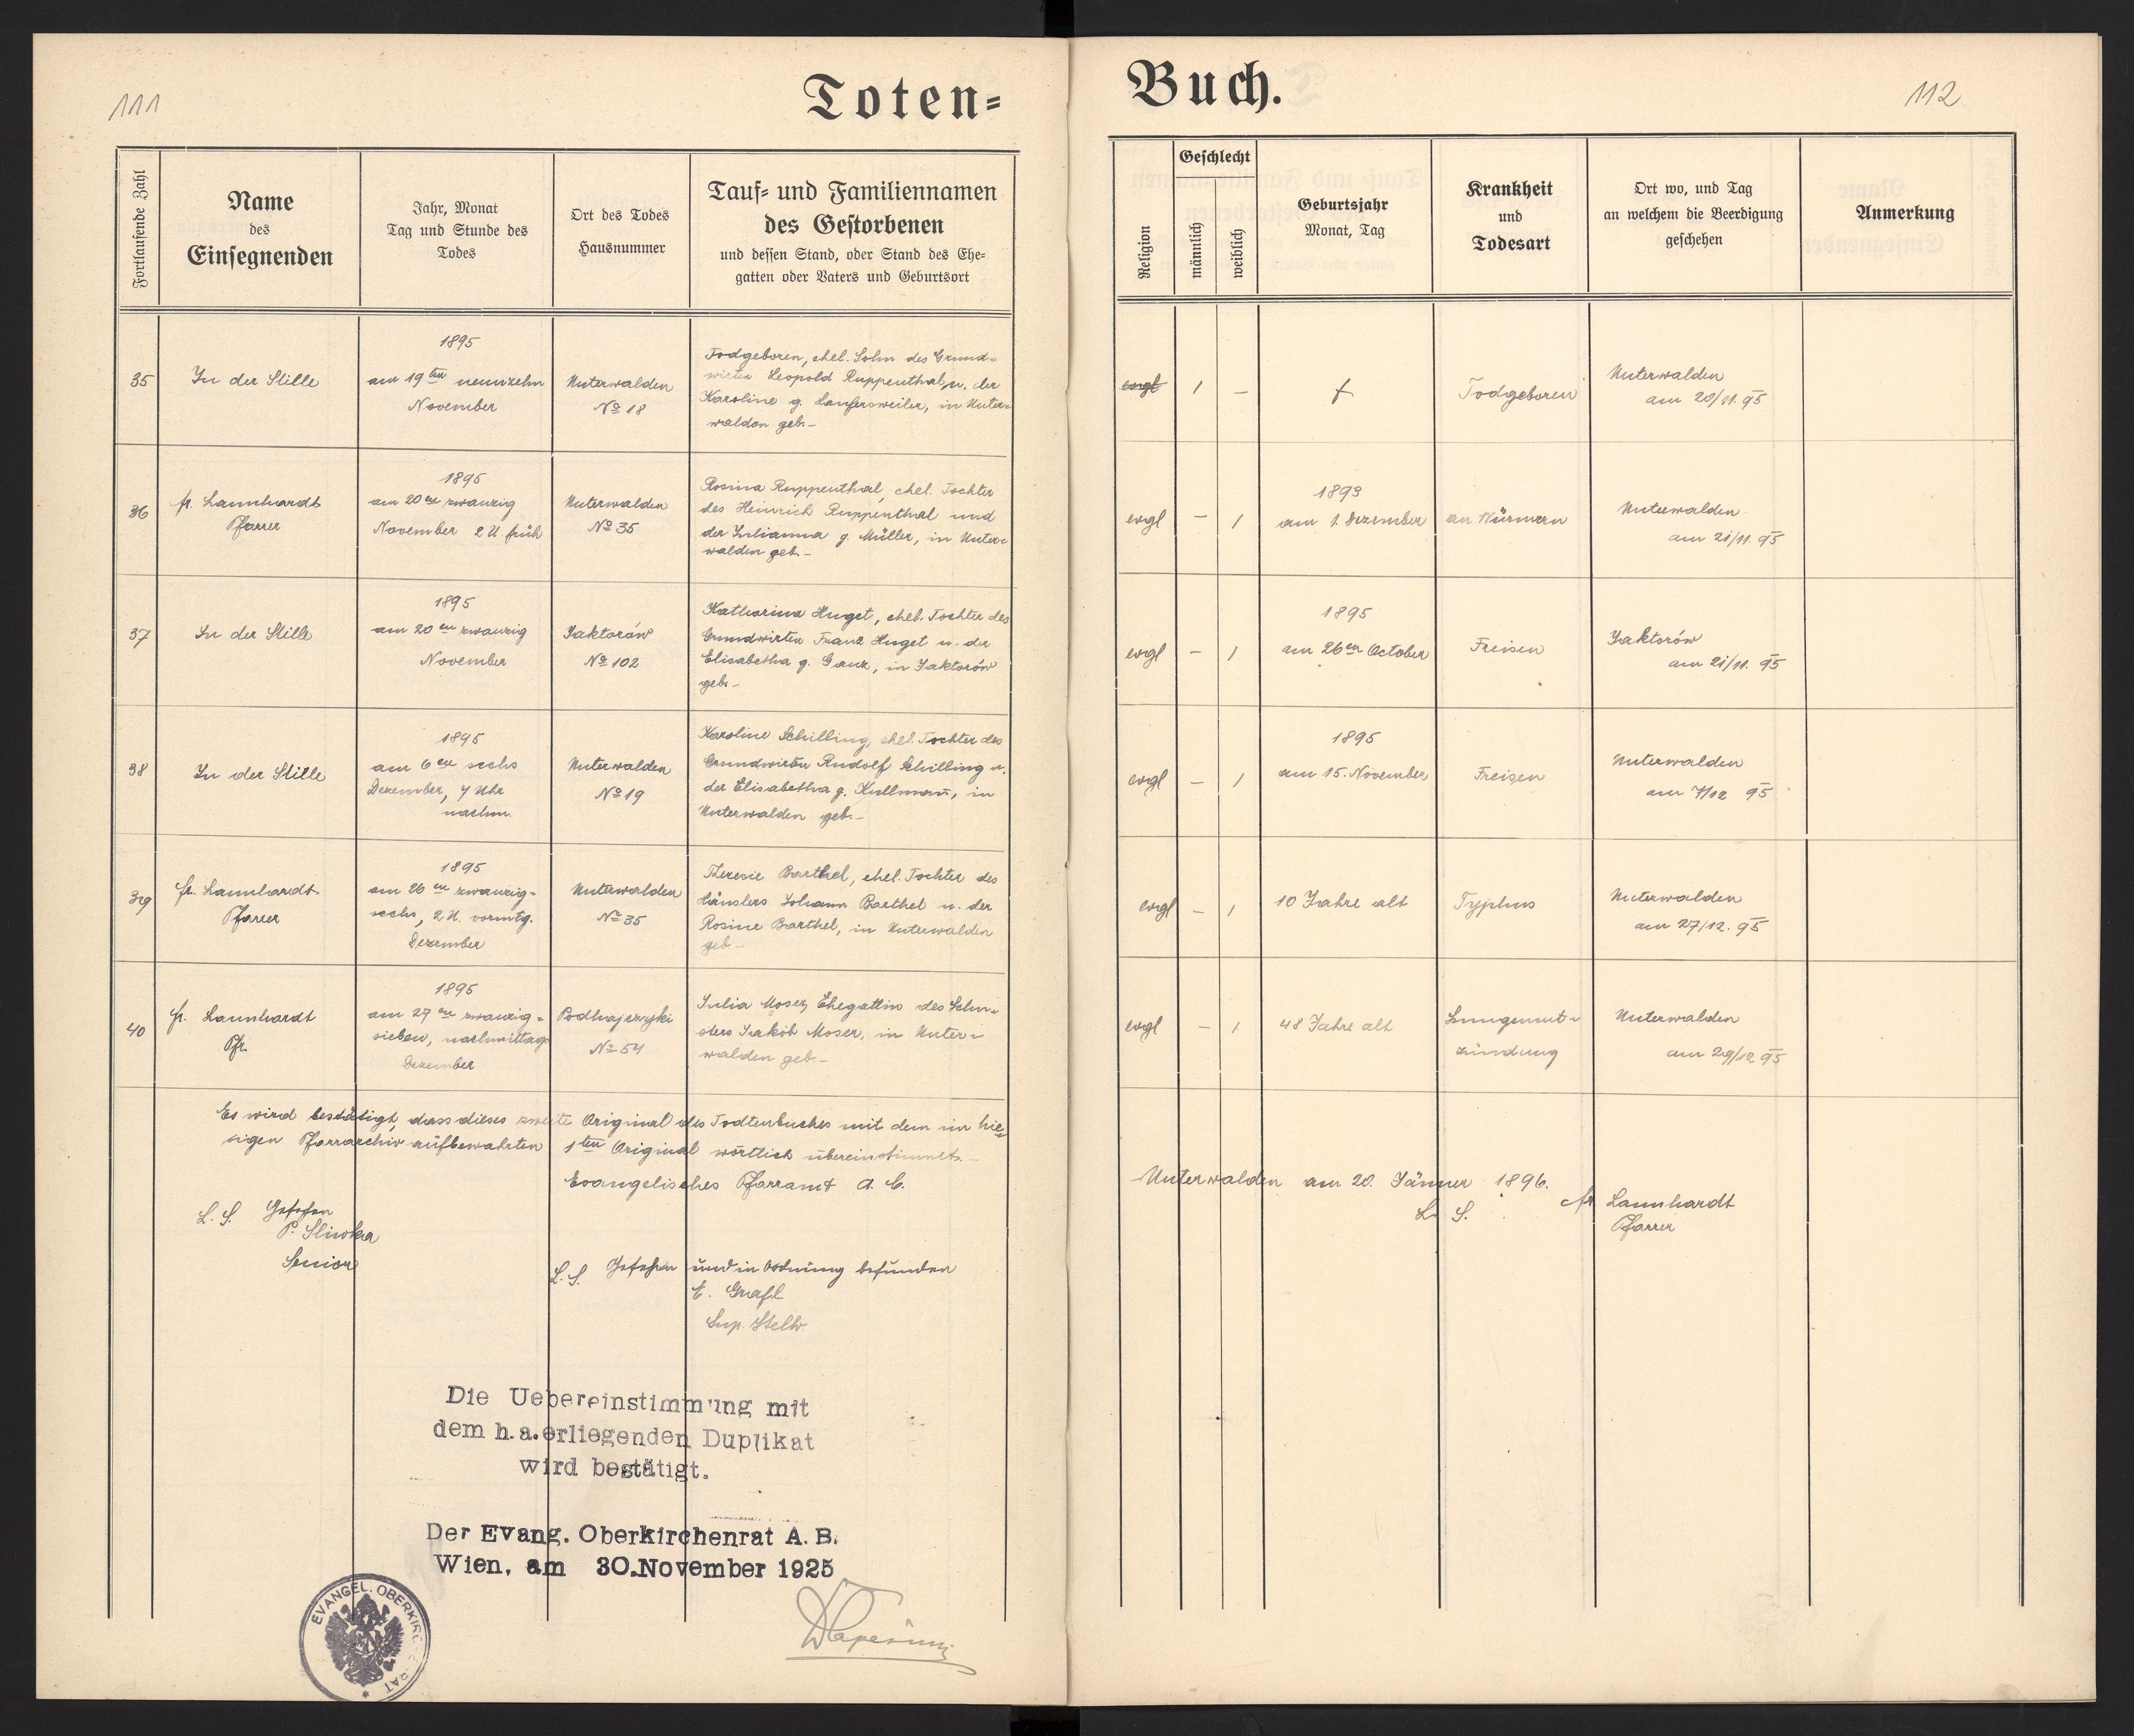 111
Toten=
Fortlaufende Zahl
Name
des
Einsegnenden
Jahr, Monat
Tag und Stunde des
Todes
Ort des Todes
Hausnummer
Tauf= und Familiennamen
des Gestorbenen
und dessen Stand, oder Stand des Ehe=
gatten oder Vaters und Geburtsort
35
In der Stille
1895
am 19ten neunzehn
November
Unterwalden
No 18
Todgeboren, ehel. Sohn des Grund-
wirten Leopold Ruppenthal u. der
Karoline g. Laufersweiler, in Unter-
walden geb.-
36
fr. Launhardt
Pfarrer
1895
am 20en zwanzig
November 2 U. früh
Unterwalden
No 35
Rosina Ruppenthal, ehel. Tochter
des Heinrich Ruppenthal und
der Julianna g. Müller, in Unter-
walden geb.-
37
In der Stille
1895
am 20en zwanzig
November
Jaktorów
No 102
Katharina Huget, ehel. Tochter des
Grundwirten Franz Huget u. der
Elisabetha g. Ganz, in Jaktorów
geb.-
38
In der Stille
1895
am 6en sechs
Dezember, 4 Uhr
nachm.
Unterwalden
No 19
Karoline Schilling, ehel. Tochter des
Grundwirten Rudolf Schilling u.
der Elisabetha g. Kullmañ, in
Unterwalden geb.-
39
fr. Launhardt
Pfarrer
1895
am 26en zwanzig-
sechs, 2 U. vormtg.
Dezember
Unterwalden
No 35
Theresie Barthel, ehel. Tochter des
Häuslers Johann Barthel u. der
Rosine Barthel, in Unterwalden
geb.-
40
fr. Launhardt
Pfr.
1895
am 27en zwanzig-
sieben, nachmittags
Dezember
Podhajczyki
No 54
Julia Moser, Ehegattin des Schu-
sters Jakob Moser, in Unter-
walden geb.-
Es wird bestätigt, dass dieses zweite Original des Todtenbuches mit dem im hie-
sigen Pfarrarchiv aufbewahrten 1ten Original wörtlich übereinstimmt.-
Evangelisches Pfarramt A. C.
L. S. Gesehen
P. Sliwka
Senior
L. S. Gesehen und in Ordnung befunden
E. Grafl
Sup. Stellv.
Die Uebereinstimmung mit
dem h.a.erliegenden Duplikat
wird bestätigt.
Der Evang. Oberkirchenrat A. B.
Wien, am 30.November 1925
EVANGEL. OBERKIRCHENRAT
Buch.
112
Religion
Geschlecht
männlich
weiblich
Geburtsjahr
Monat, Tag
Krankheit
und
Todesart
Ort wo, und Tag
an welchem die Beerdigung
geschehen
Anmerkung
evgl
1
-
†
Todgeboren
Unterwalden
am 20/11. 95
evgl
-
1
1893
am 1. Dezember
an Würmern
Unterwalden
am 21/11. 95
evgl
-
1
1895
am 26en October
Freisen
Jaktorów
am 21/11. 95
evgl
-
1
1895
am 15. November
Freisen
Unterwalden
am 7/12 95
evgl
-
1
10 Jahre alt
Typhus
Unterwalden
am 27/12. 95
evgl
-
1
48 Jahre alt
Lungenent-
zündung
Unterwalden
am 29/12 95
Unterwalden am 20. Jänner 1896.
L. S.
fr. Launhardt
Pfarrer